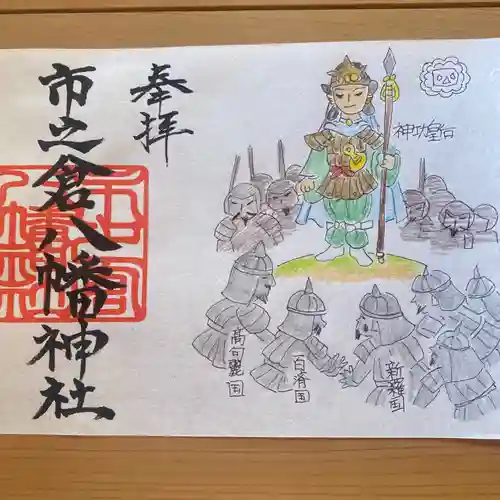 奉拝
市之倉八幡神社
神功皇后
高句麗国
百済国
新羅国